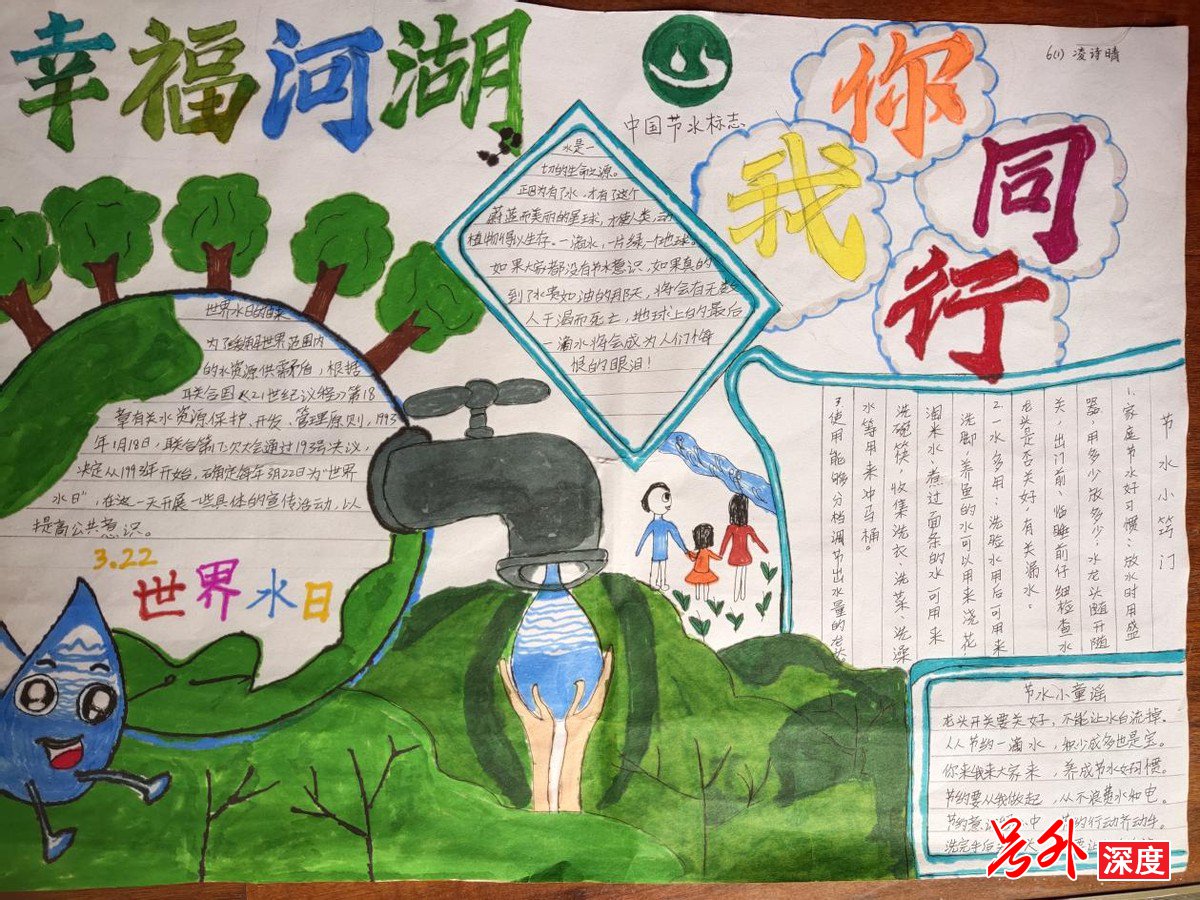 幸福河湖
你
我
同
行
6(1) 凌诗晴
中国节水标志
水是一
切的生命之源。
正因为有了水,才有了这个
蔚蓝而美丽的星球,才使人类、动
植物得以生存。一滴水,一片绿,一个地球。
如果大家都没有节水意识,如果真的
到了水贵如油的那天,将会有无数
人干渴而死亡,地球上的最后
一滴水将会成为人们悔
恨的眼泪!
世界水日的由来
为了缓解世界范围内
的水资源供需矛盾,根据
联合国《21世纪议程》第18
章有关水资源保护、开发、管理原则,1993
年1月18日,联合第47次大会通过193号决议,
决定从1993年开始,确定每年3月22日为“世界
水日”,在这一天开展一些具体的宣传活动,以
提高公共意识。
3.22
世界水日
节水小窍门
1、家庭节水好习惯:放水时用盛
器,用多少放多少;水龙头随开随
关,出门前、临睡前仔细检查水
龙头是否关好,有关漏水。
2、一水多用:洗脸水用后可用来
洗脚,养鱼的水可以用来浇花
淘米水、煮过面条的水可用来
洗碗筷,收集洗衣、洗菜、洗澡
水等用来冲马桶。
3、使用能够分档调节出水量的龙头
节水小童谣
龙头开关要关好,不能让水白流掉。
人人节约一滴水,积少成多也是宝。
你来我来大家来,养成节水好习惯。
节约要从我做起,从不浪费水和电。
节约意识 中 节约行动齐动手。
洗完手后
号外
深度